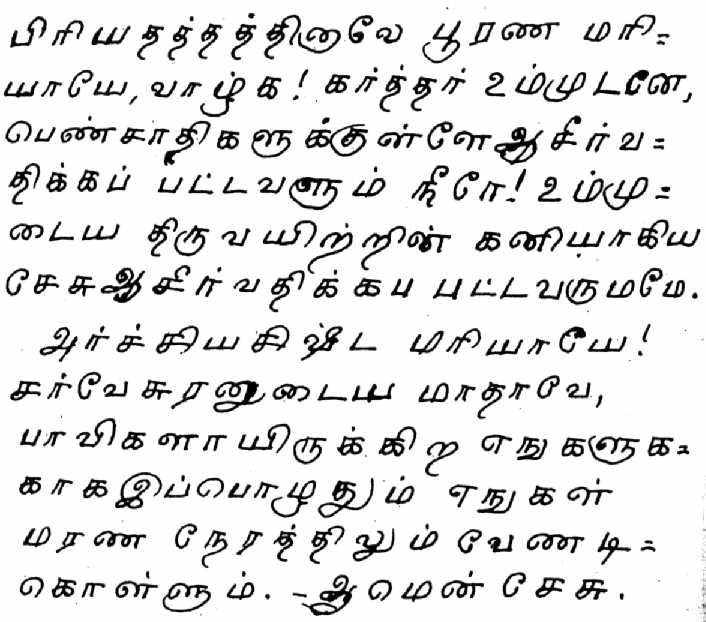 பிரியதத்தத்தினாலே பூரண மரி=
யாயே, வாழ்க! கர்த்தர் உம்முடனே,
பெண்சாதிகளுக்குள்ளே ஆசீர்வ=
திக்கப் பட்டவளும் நீரே! உம்மு=
டைய திருவயிற்றின் கனியாகிய
சேசு ஆசீர்வதிக்கப பட்டவருமமே.
அர்ச்சியசிஷ்ட மரியாயே!
சர்வேசுரனுடைய மாதாவே,
பாவிகளாயிருக்கிற எஙகளுக=
காக இப்பொழதும் எஙகள்
மரண நேரத்திலும் வேணடி=
கொள்ளும். - ஆமென் சேசு.